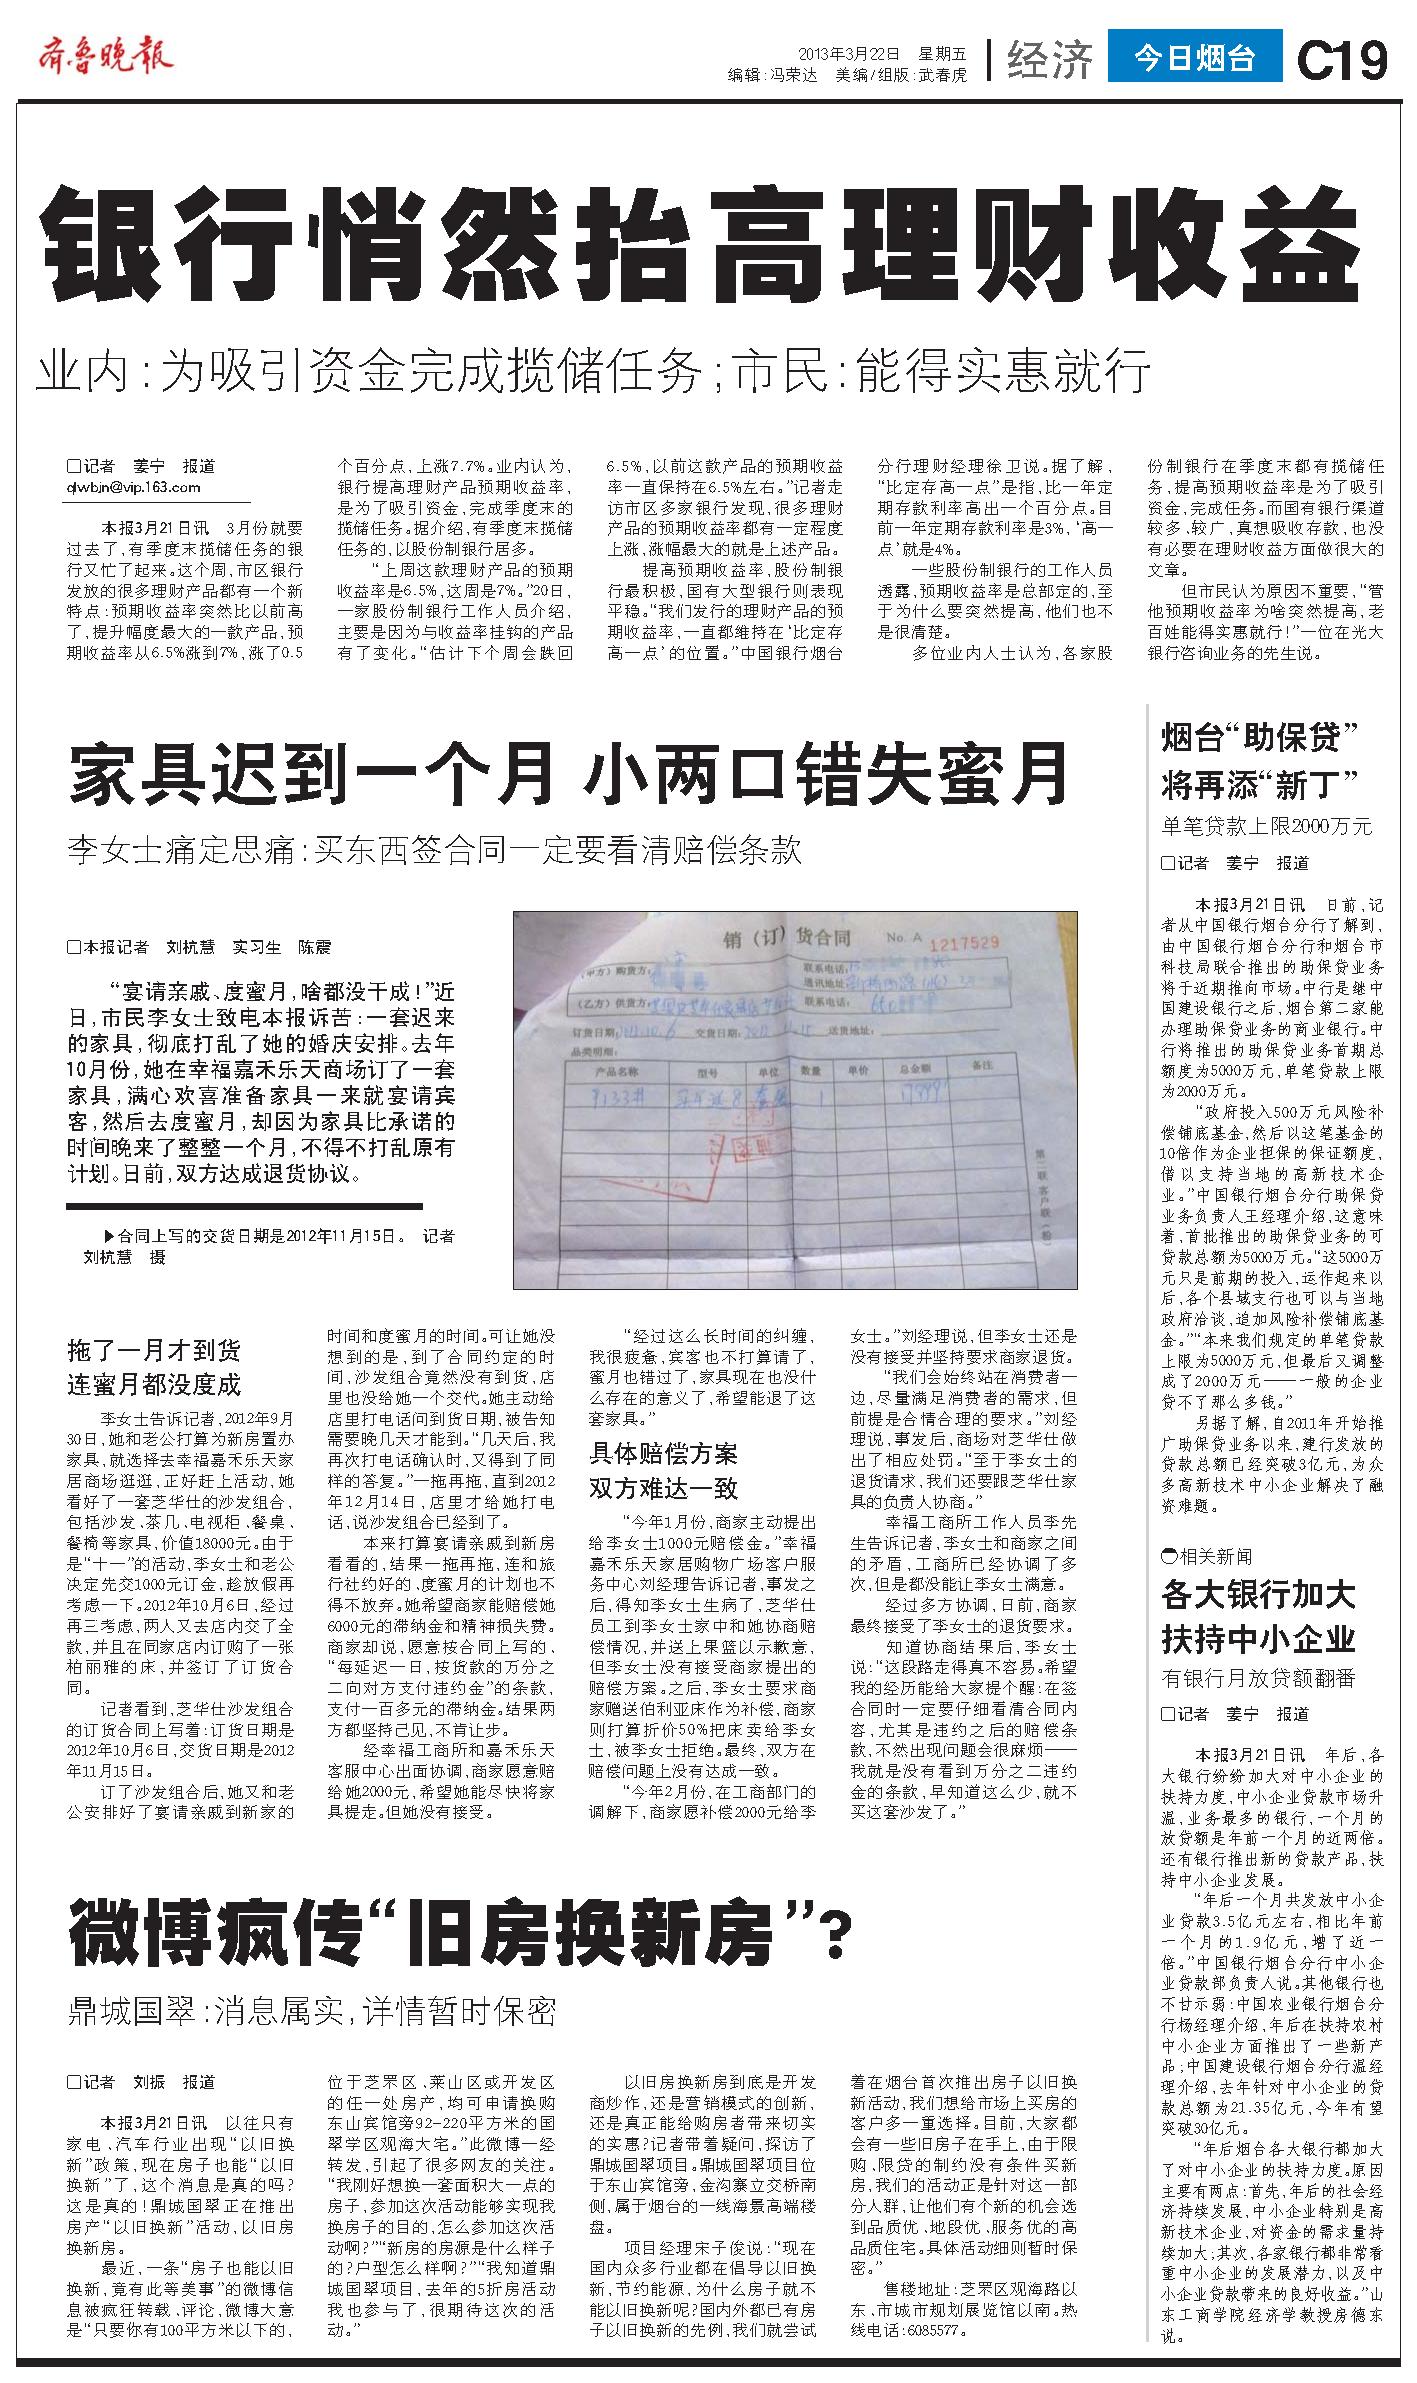 齐鲁晚报
2013年3月22日 星期五
编辑:冯荣达 美编/组版:武春虎
经济
今日烟台
C19
银行悄然抬高理财收益
业内:为吸引资金完成揽储任务;市民:能得实惠就行
□记者 姜宁 报道
qlwbjn@vip.163.com
本报3月21日讯 3月份就要
过去了,有季度末揽储任务的银
行又忙了起来。这个周,市区银行
发放的很多理财产品都有一个新
特点:预期收益率突然比以前高
了,提升幅度最大的一款产品,预
期收益率从6.5%涨到7%,涨了0.5
个百分点,上涨7.7%。业内认为,
银行提高理财产品预期收益率,
是为了吸引资金,完成季度末的
揽储任务。据介绍,有季度末揽储
任务的,以股份制银行居多。
“上周这款理财产品的预期
收益率是6.5%,这周是7%。”20日,
一家股份制银行工作人员介绍,
主要是因为与收益率挂钩的产品
有了变化。“估计下个周会跌回
6.5%,以前这款产品的预期收益
率一直保持在6.5%左右。”记者走
访市区多家银行发现,很多理财
产品的预期收益率都有一定程度
上涨,涨幅最大的就是上述产品。
提高预期收益率,股份制银
行最积极,国有大型银行则表现
平稳。“我们发行的理财产品的预
期收益率,一直都维持在‘比定存
高一点’的位置。”中国银行烟台
分行理财经理徐卫说。据了解,
“比定存高一点”是指,比一年定
期存款利率高出一个百分点。目
前一年定期存款利率是3%,‘高一
点’就是4%。
一些股份制银行的工作人员
透露,预期收益率是总部定的,至
于为什么要突然提高,他们也不
是很清楚。
多位业内人士认为,各家股
份制银行在季度末都有揽储任
务,提高预期收益率是为了吸引
资金,完成任务。而国有银行渠道
较多、较广,真想吸收存款,也没
有必要在理财收益方面做很大的
文章。
但市民认为原因不重要,“管
他预期收益率为啥突然提高,老
百姓能得实惠就行!”一位在光大
银行咨询业务的先生说。
家具迟到一个月 小两口错失蜜月
李女士痛定思痛:买东西签合同一定要看清赔偿条款
□本报记者 刘杭慧 实习生 陈震
“宴请亲戚、度蜜月,啥都没干成!”近
日,市民李女士致电本报诉苦:一套迟来
的家具,彻底打乱了她的婚庆安排。去年
10月份,她在幸福嘉禾乐天商场订了一套
家具,满心欢喜准备家具一来就宴请宾
客,然后去度蜜月,却因为家具比承诺的
时间晚来了整整一个月,不得不打乱原有
计划。日前,双方达成退货协议。
▶合同上写的交货日期是2012年11月15日。 记者
刘杭慧 摄
销（订）货合同 No. A 1217529
（甲方）购货方:
联系电话:
通讯地址:
（乙方）供货方:
联系电话:
订货日期: 交货日期: 送货地址:
品类明细:
产品名称 型号 单位 数量 单价 总金额 备注
拖了一月才到货
连蜜月都没度成
李女士告诉记者,2012年9月
30日,她和老公打算为新房置办
家具,就选择去幸福嘉禾乐天家
居商场逛逛,正好赶上活动,她
看好了一套芝华仕的沙发组合,
包括沙发、茶几、电视柜、餐桌、
餐椅等家具,价值18000元。由于
是“十一”的活动,李女士和老公
决定先交1000元订金,趁放假再
考虑一下。2012年10月6日,经过
再三考虑,两人又去店内交了全
款,并且在同家店内订购了一张
柏丽雅的床,并签订了订货合
同。
记者看到,芝华仕沙发组合
的订货合同上写着:订货日期是
2012年10月6日,交货日期是2012
年11月15日。
订了沙发组合后,她又和老
公安排好了宴请亲戚到新家的
时间和度蜜月的时间。可让她没
想到的是,到了合同约定的时
间,沙发组合竟然没有到货,店
里也没给她一个交代。她主动给
店里打电话问到货日期,被告知
需要晚几天才能到。“几天后,我
再次打电话确认时,又得到了同
样的答复。”一拖再拖,直到2012
年12月14日,店里才给她打电
话,说沙发组合已经到了。
本来打算宴请亲戚到新房
看看的,结果一拖再拖,连和旅
行社约好的、度蜜月的计划也不
得不放弃。她希望商家能赔偿她
6000元的滞纳金和精神损失费。
商家却说,愿意按合同上写的、
“每延迟一日,按货款的万分之
二向对方支付违约金”的条款,
支付一百多元的滞纳金。结果两
方都坚持己见,不肯让步。
经幸福工商所和嘉禾乐天
客服中心出面协调,商家愿意赔
给她2000元,希望她能尽快将家
具提走。但她没有接受。
“经过这么长时间的纠缠,
我很疲惫,宾客也不打算请了,
蜜月也错过了,家具现在也没什
么存在的意义了,希望能退了这
套家具。”
具体赔偿方案
双方难达一致
“今年1月份,商家主动提出
给李女士1000元赔偿金。”幸福
嘉禾乐天家居购物广场客户服
务中心刘经理告诉记者,事发之
后,得知李女士生病了,芝华仕
员工到李女士家中和她协商赔
偿情况,并送上果篮以示歉意,
但李女士没有接受商家提出的
赔偿方案。之后,李女士要求商
家赠送伯利亚床作为补偿,商家
则打算折价50%把床卖给李女
士,被李女士拒绝。最终,双方在
赔偿问题上没有达成一致。
“今年2月份,在工商部门的
调解下,商家愿补偿2000元给李
女士。”刘经理说,但李女士还是
没有接受并坚持要求商家退货。
“我们会始终站在消费者一
边,尽量满足消费者的需求,但
前提是合情合理的要求。”刘经
理说,事发后,商场对芝华仕做
出了相应处罚。“至于李女士的
退货请求,我们还要跟芝华仕家
具的负责人协商。”
幸福工商所工作人员李先
生告诉记者,李女士和商家之间
的矛盾,工商所已经协调了多
次,但是都没能让李女士满意。
经过多方协调,日前,商家
最终接受了李女士的退货要求。
知道协商结果后,李女士
说:“这段路走得真不容易。希望
我的经历能给大家提个醒:在签
合同时一定要仔细看清合同内
容,尤其是违约之后的赔偿条
款,不然出现问题会很麻烦——
我就是没有看到万分之二违约
金的条款,早知道这么少,就不
买这套沙发了。”
微博疯传“旧房换新房”?
鼎城国翠:消息属实,详情暂时保密
□记者 刘振 报道
本报3月21日讯 以往只有
家电、汽车行业出现“以旧换
新”政策,现在房子也能“以旧
换新”了,这个消息是真的吗?
这是真的!鼎城国翠正在推出
房产“以旧换新”活动,以旧房
换新房。
最近,一条“房子也能以旧
换新,竟有此等美事”的微博信
息被疯狂转载、评论,微博大意
是“只要你有100平方米以下的,
位于芝罘区、莱山区或开发区
的任一处房产,均可申请换购
东山宾馆旁92-220平方米的国
翠学区观海大宅。”此微博一经
转发,引起了很多网友的关注。
“我刚好想换一套面积大一点的
房子,参加这次活动能够实现我
换房子的目的,怎么参加这次活
动啊?”“新房的房源是什么样子
的?户型怎么样啊?”“我知道鼎
城国翠项目,去年的5折房活动
我也参与了,很期待这次的活
动。”
以旧房换新房到底是开发
商炒作,还是营销模式的创新,
还是真正能给购房者带来切实
的实惠?记者带着疑问,探访了
鼎城国翠项目。鼎城国翠项目位
于东山宾馆旁,金沟寨立交桥南
侧,属于烟台的一线海景高端楼
盘。
项目经理宋子俊说:“现在
国内众多行业都在倡导以旧换
新,节约能源,为什么房子就不
能以旧换新呢?国内外都已有房
子以旧换新的先例,我们就尝试
着在烟台首次推出房子以旧换
新活动,我们想给市场上买房的
客户多一重选择。目前,大家都
会有一些旧房子在手上,由于限
购、限贷的制约没有条件买新
房,我们的活动正是针对这一部
分人群,让他们有个新的机会选
到品质优、地段优、服务优的高
品质住宅。具体活动细则暂时保
密。”
售楼地址:芝罘区观海路以
东、市城市规划展览馆以南。热
线电话:6085577。
烟台“助保贷”
将再添“新丁”
单笔贷款上限2000万元
□记者 姜宁 报道
本报3月21日讯 日前,记
者从中国银行烟台分行了解到,
由中国银行烟台分行和烟台市
科技局联合推出的助保贷业务
将于近期推向市场。中行是继中
国建设银行之后,烟台第二家能
办理助保贷业务的商业银行。中
行将推出的助保贷业务首期总
额度为5000万元,单笔贷款上限
为2000万元。
“政府投入500万元风险补
偿铺底基金,然后以这笔基金的
10倍作为企业担保的保证额度,
借以支持当地的高新技术企
业。”中国银行烟台分行助保贷
业务负责人王经理介绍,这意味
着,首批推出的助保贷业务的可
贷款总额为5000万元。“这5000万
元只是前期的投入,运作起来以
后,各个县域支行也可以与当地
政府洽谈,追加风险补偿铺底基
金。”“本来我们规定的单笔贷款
上限为5000万元,但最后又调整
成了2000万元——一般的企业
贷不了那么多钱。”
另据了解,自2011年开始推
广助保贷业务以来,建行发放的
贷款总额已经突破3亿元,为众
多高新技术中小企业解决了融
资难题。
相关新闻
各大银行加大
扶持中小企业
有银行月放贷额翻番
□记者 姜宁 报道
本报3月21日讯 年后,各
大银行纷纷加大对中小企业的
扶持力度,中小企业贷款市场升
温,业务最多的银行,一个月的
放贷额是年前一个月的近两倍。
还有银行推出新的贷款产品,扶
持中小企业发展。
“年后一个月共发放中小企
业贷款3.5亿元左右,相比年前
一个月的1.9亿元,增了近一
倍。”中国银行烟台分行中小企
业贷款部负责人说。其他银行也
不甘示弱:中国农业银行烟台分
行杨经理介绍,年后在扶持农村
中小企业方面推出了一些新产
品;中国建设银行烟台分行温经
理介绍,去年针对中小企业的贷
款总额为21.35亿元,今年有望
突破30亿元。
“年后烟台各大银行都加大
了对中小企业的扶持力度。原因
主要有两点:首先,年后的社会经
济持续发展,中小企业特别是高
新技术企业,对资金的需求量持
续加大;其次,各家银行都非常看
重中小企业的发展潜力,以及中
小企业贷款带来的良好收益。”山
东工商学院经济学教授房德东
说。